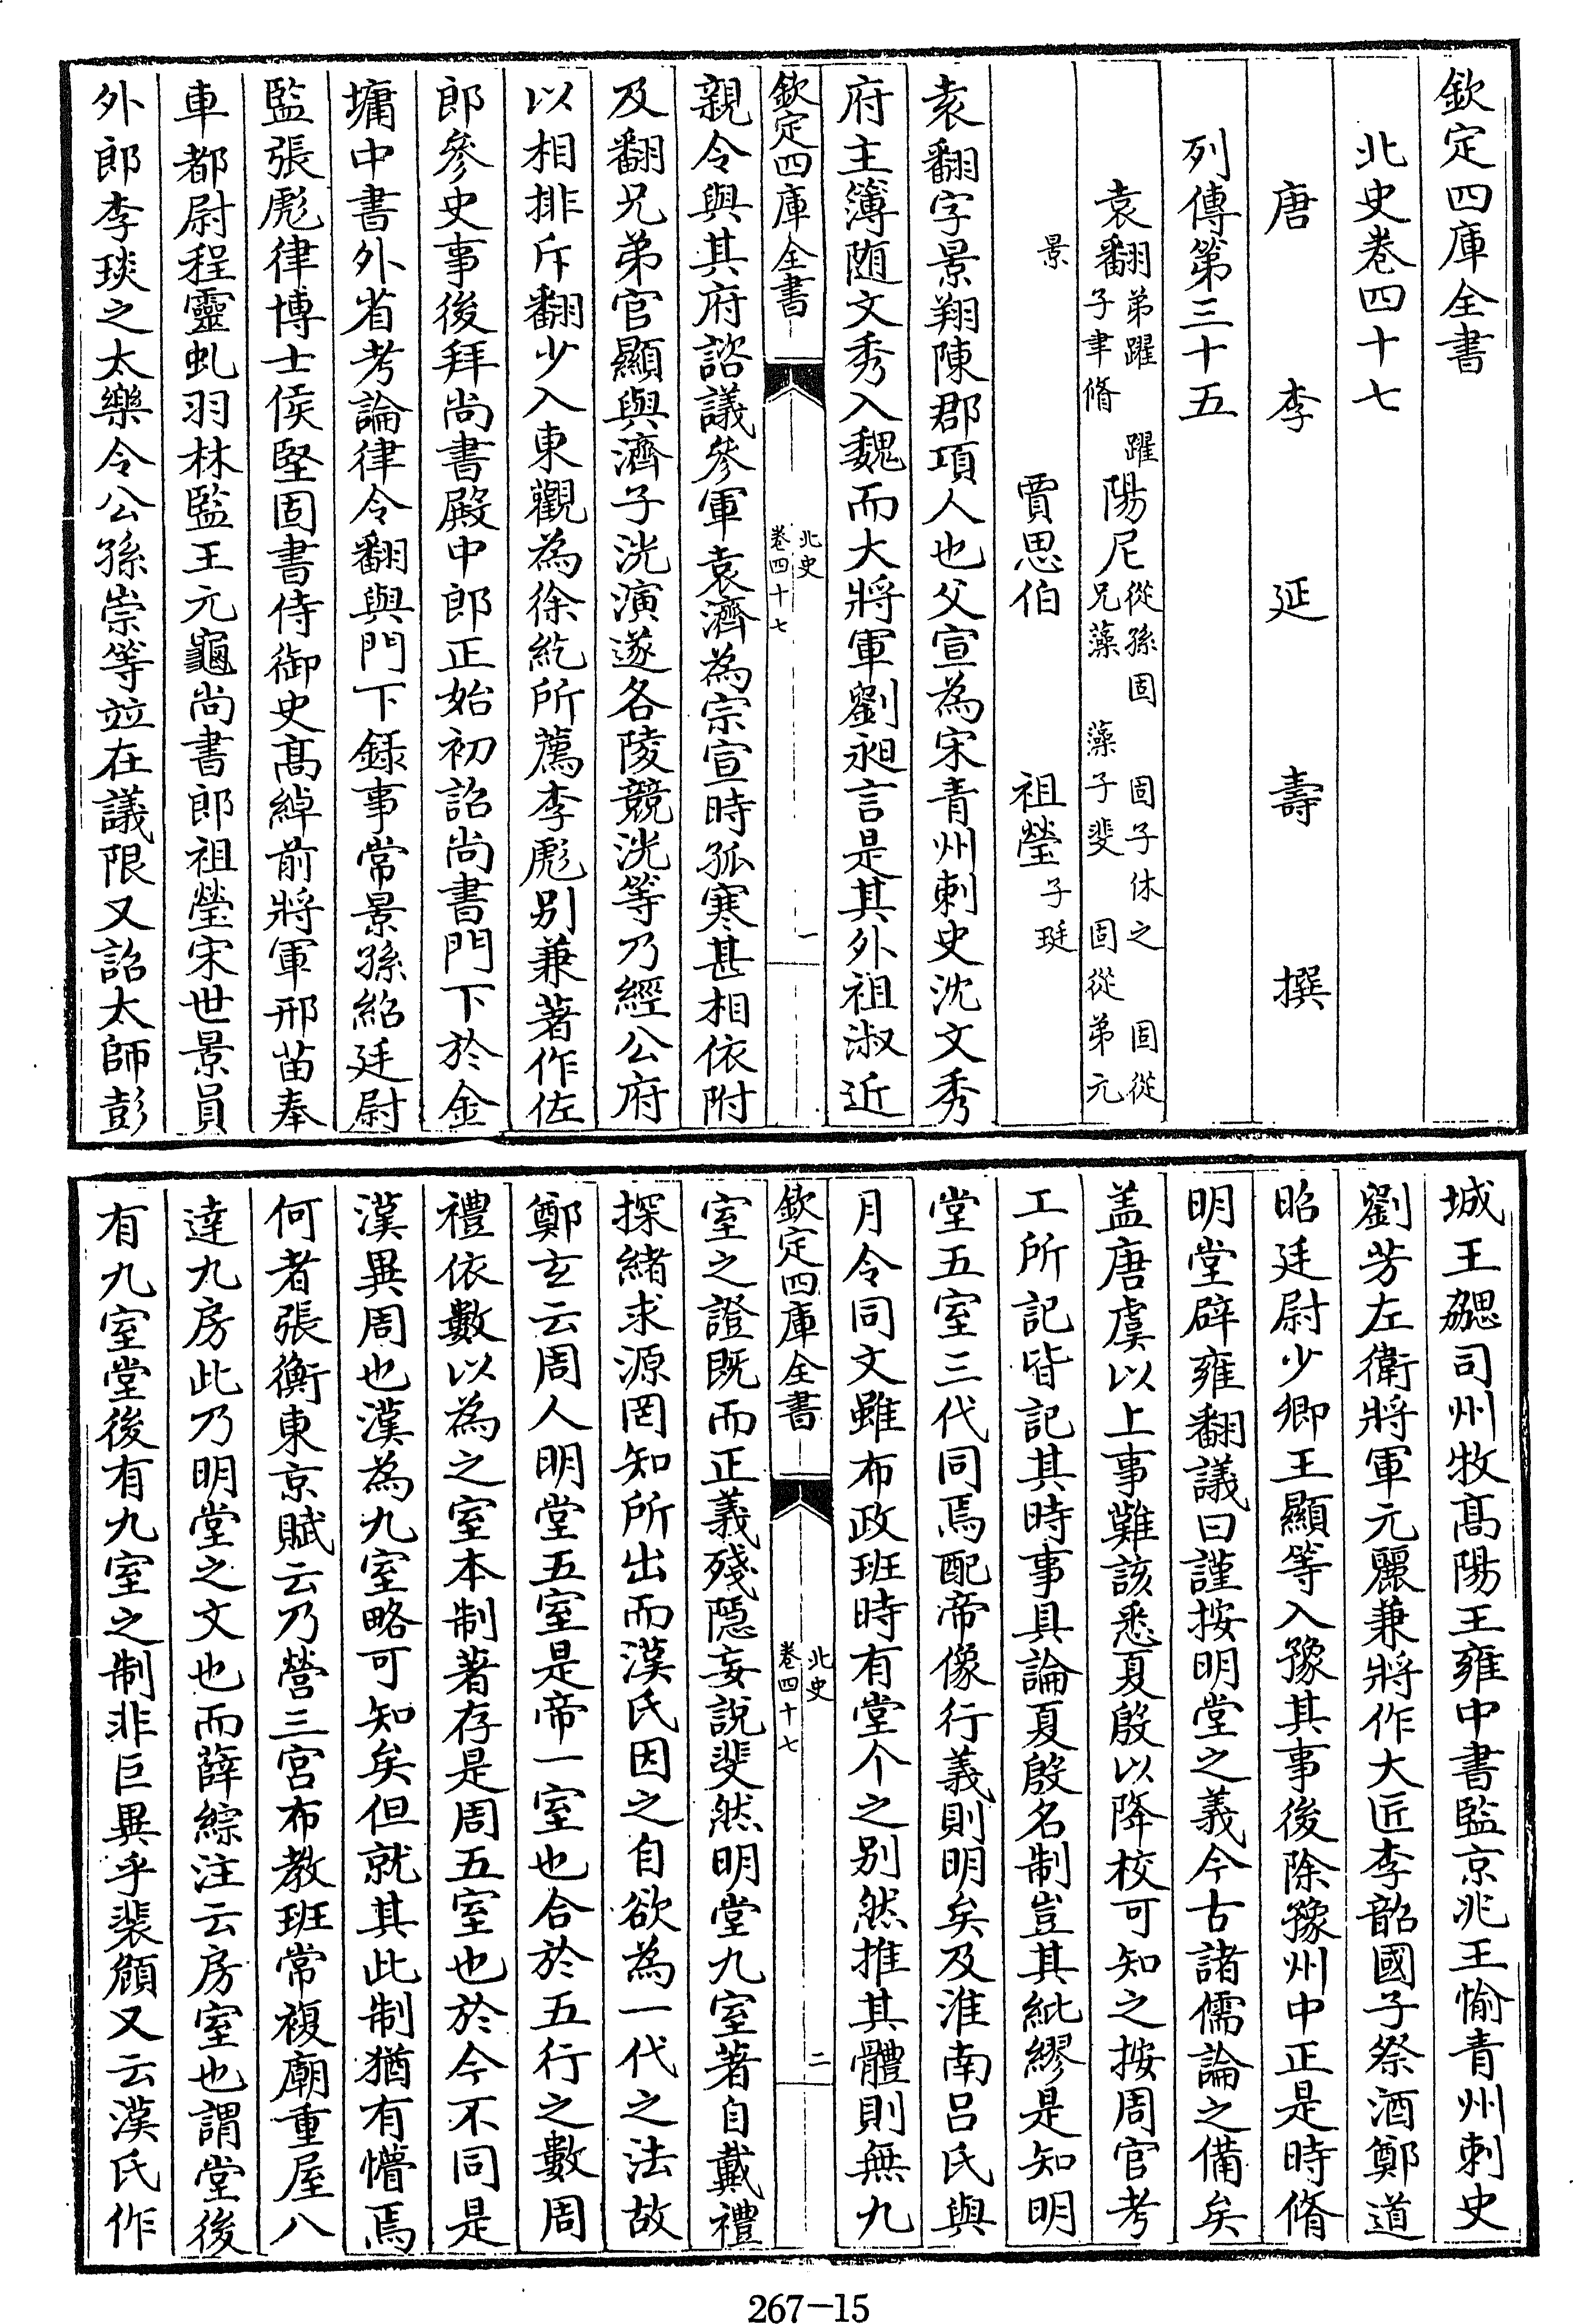 欽定四庫全書
北史巻四十七
唐李延壽撰
列傳第三十五
袁翻弟躍 躍子聿脩 陽尼從孫固 固子休之 固從兄藻 藻子斐 固從弟元
景 賈思伯 祖瑩子珽
袁翻字景翔陳郡項人也父宣為宋青州刺史沈文秀
府主簿随文秀入魏而大將軍劉昶言是其外祖淑近
欽定四庫全書 北史 巻四十七 一
親令與其府諮議參軍袁濟為宗宣時孤寒甚相依附
及翻兄弟官顯與濟子洸演遂各陵競洸等乃經公府
以相排斥翻少入東觀為徐紇所薦李彪别兼著作佐
郎參史事後拜尚書殿中郎正始初詔尚書門下於金
墉中書外省考論律令翻與門下録事常景孫紹廷尉
監張彪律博士侯堅固書侍御史髙綽前將軍邢苗奉
車都尉程靈虬羽林監王元龜尚書郎祖瑩宋世景員
外郎李琰之太樂令公孫崇等竝在議限又詔太師彭
城王勰司州牧髙陽王雍中書監京兆王愉青州刺史
劉芳左衛將軍元麗兼將作大匠李韶國子祭酒鄭道
昭廷尉少卿王顯等入豫其事後除豫州中正是時脩
明堂辟雍翻議曰謹按明堂之義今古諸儒論之備矣
盖唐虞以上事難該悉夏殷以降校可知之按周官考
工所記皆記其時事具論夏殷名制豈其紕繆是知明
堂五室三代同焉配帝像行義則明矣及淮南吕氏與
月令同文雖布政班時有堂个之别然推其體則無九
欽定四庫全書 北史 巻四十七 二
室之證既而正義殘隱妄説斐然明堂九室著自戴禮
探緒求源罔知所出而漢氏因之自欲為一代之法故
鄭玄云周人明堂五室是帝一室也合於五行之數周
禮依數以為之室本制著存是周五室也於今不同是
漢異周也漢為九室略可知矣但就其此制猶有懵焉
何者張衡東京賦云乃營三宫布教班常複廟重屋八
達九房此乃明堂之文也而薛綜注云房室也謂堂後
有九室堂後有九室之制非巨異乎裴頠又云漢氏作
267-15